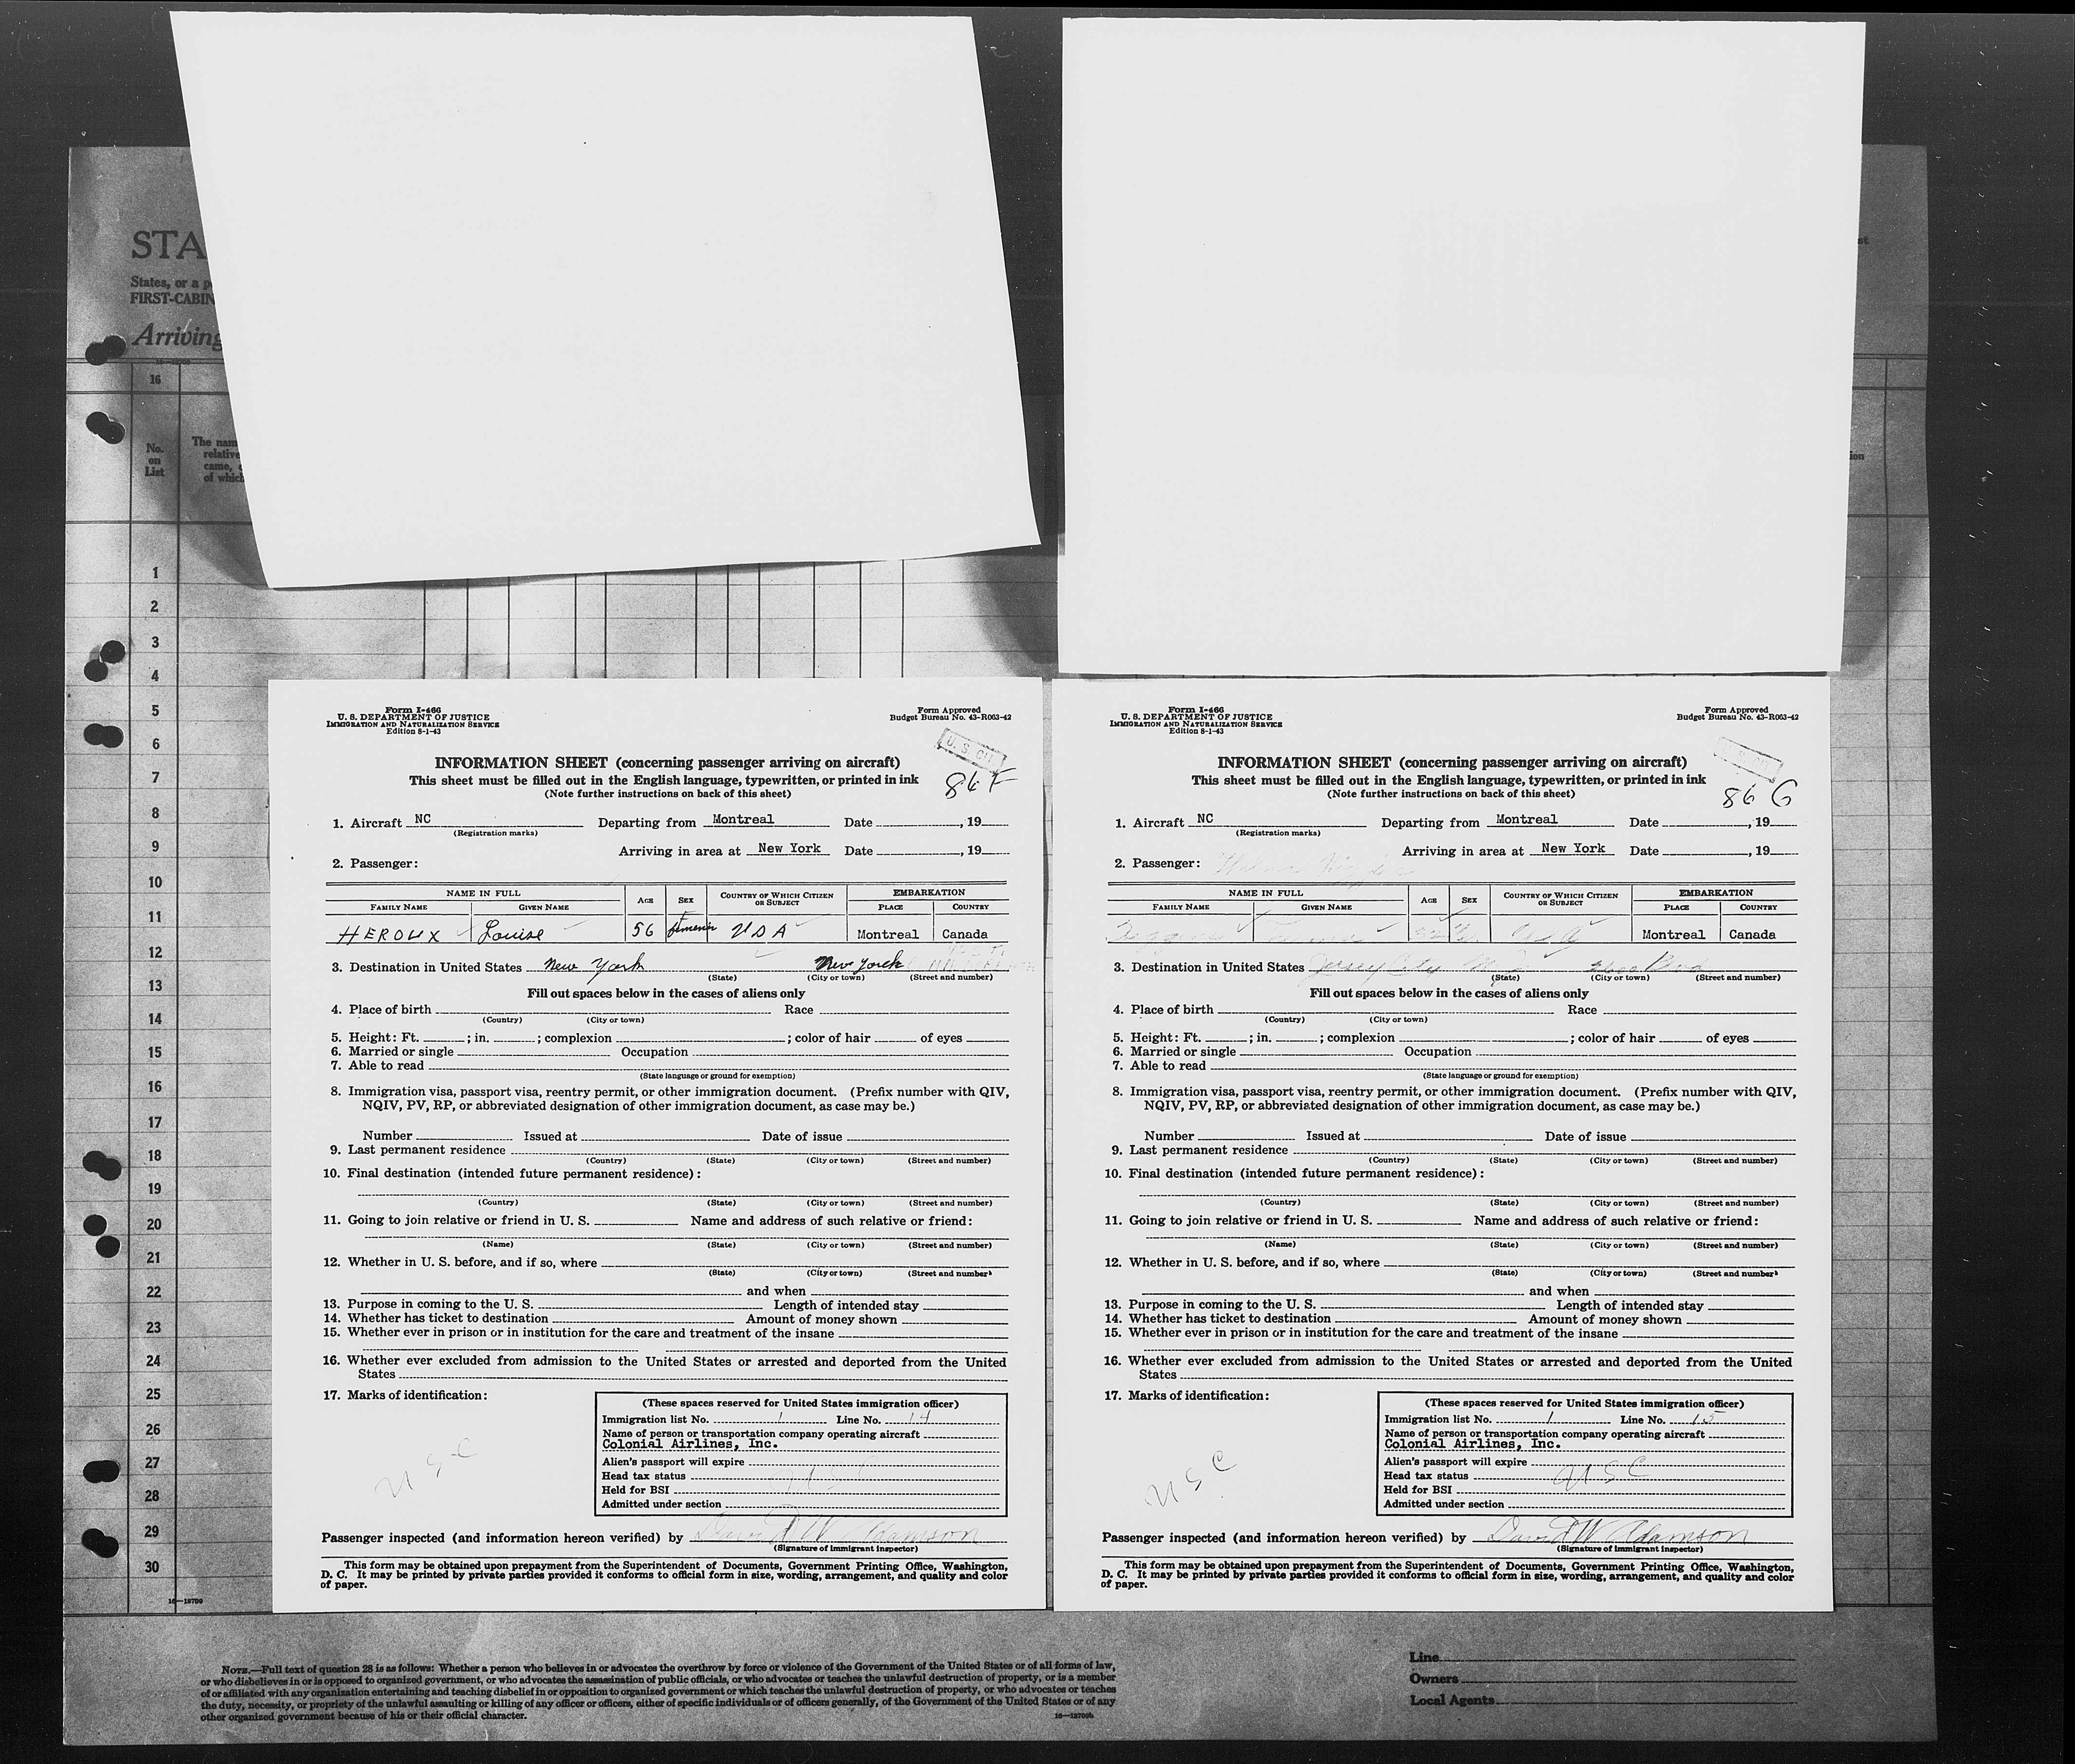 STA
States, or a p
FIRST-CABIN
Arriving
16—18709
16
No.
on
List
The nam
relative
came,
of which
nt
ion
1
2
3
4
5
6
7
8
9
10
11
12
13
14
15
16
17
18
19
20
21
22
23
24
25
26
27
28
29
30
16—18709
Form I-466
U. S. DEPARTMENT OF JUSTICE
IMMIGRATION AND NATURALIZATION SERVICE
Edition 8-1-43
Form Approved
Budget Bureau No. 43-R063-42
U. S. CIT.
86 F
INFORMATION SHEET (concerning passenger arriving on aircraft)
This sheet must be filled out in the English language, typewritten, or printed in ink
(Note further instructions on back of this sheet)
1. Aircraft NC Departing from Montreal Date , 19
(Registration marks)
Arriving in area at New York Date , 19
2. Passenger:
NAME IN FULL AGE SEX COUNTRY OF WHICH CITIZEN OR SUBJECT EMBARKATION
FAMILY NAME GIVEN NAME PLACE COUNTRY
HEROUX Louise 56 USA Montreal Canada
3. Destination in United States New York New York
(State) (City or town) (Street and number)
Fill out spaces below in the cases of aliens only
4. Place of birth Race
(Country) (City or town)
5. Height: Ft. ; in. ; complexion ; color of hair of eyes
6. Married or single Occupation
7. Able to read
(State language or ground for exemption)
8. Immigration visa, passport visa, reentry permit, or other immigration document. (Prefix number with QIV,
NQIV, PV, RP, or abbreviated designation of other immigration document, as case may be.)
Number Issued at Date of issue
9. Last permanent residence
(Country) (State) (City or town) (Street and number)
10. Final destination (intended future permanent residence):
(Country) (State) (City or town) (Street and number)
11. Going to join relative or friend in U. S. Name and address of such relative or friend:
(Name) (State) (City or town) (Street and number)
12. Whether in U. S. before, and if so, where
(State) (City or town) (Street and number)
and when
13. Purpose in coming to the U. S. Length of intended stay
14. Whether has ticket to destination Amount of money shown
15. Whether ever in prison or in institution for the care and treatment of the insane
16. Whether ever excluded from admission to the United States or arrested and deported from the United
States
17. Marks of identification:
(These spaces reserved for United States immigration officer)
Immigration list No. 1 Line No. 14
Name of person or transportation company operating aircraft
Colonial Airlines, Inc.
Alien's passport will expire
Head tax status USC
Held for BSI
Admitted under section
USC
Passenger inspected (and information hereon verified) by David W Adamson
(Signature of immigrant inspector)
This form may be obtained upon prepayment from the Superintendent of Documents, Government Printing Office, Washington,
D. C. It may be printed by private parties provided it conforms to official form in size, wording, arrangement, and quality and color
of paper.
Form I-466
U. S. DEPARTMENT OF JUSTICE
IMMIGRATION AND NATURALIZATION SERVICE
Edition 8-1-43
Form Approved
Budget Bureau No. 43-R063-42
86 G
INFORMATION SHEET (concerning passenger arriving on aircraft)
This sheet must be filled out in the English language, typewritten, or printed in ink
(Note further instructions on back of this sheet)
1. Aircraft NC Departing from Montreal Date , 19
(Registration marks)
Arriving in area at New York Date , 19
2. Passenger:
NAME IN FULL AGE SEX COUNTRY OF WHICH CITIZEN OR SUBJECT EMBARKATION
FAMILY NAME GIVEN NAME PLACE COUNTRY
Montreal Canada
3. Destination in United States Jersey City
(State) (City or town) (Street and number)
Fill out spaces below in the cases of aliens only
4. Place of birth Race
(Country) (City or town)
5. Height: Ft. ; in. ; complexion ; color of hair of eyes
6. Married or single Occupation
7. Able to read
(State language or ground for exemption)
8. Immigration visa, passport visa, reentry permit, or other immigration document. (Prefix number with QIV,
NQIV, PV, RP, or abbreviated designation of other immigration document, as case may be.)
Number Issued at Date of issue
9. Last permanent residence
(Country) (State) (City or town) (Street and number)
10. Final destination (intended future permanent residence):
(Country) (State) (City or town) (Street and number)
11. Going to join relative or friend in U. S. Name and address of such relative or friend:
(Name) (State) (City or town) (Street and number)
12. Whether in U. S. before, and if so, where
(State) (City or town) (Street and number)
and when
13. Purpose in coming to the U. S. Length of intended stay
14. Whether has ticket to destination Amount of money shown
15. Whether ever in prison or in institution for the care and treatment of the insane
16. Whether ever excluded from admission to the United States or arrested and deported from the United
States
17. Marks of identification:
(These spaces reserved for United States immigration officer)
Immigration list No. 1 Line No. 15
Name of person or transportation company operating aircraft
Colonial Airlines, Inc.
Alien's passport will expire
Head tax status USC
Held for BSI
Admitted under section
USC
Passenger inspected (and information hereon verified) by David W Adamson
(Signature of immigrant inspector)
This form may be obtained upon prepayment from the Superintendent of Documents, Government Printing Office, Washington,
D. C. It may be printed by private parties provided it conforms to official form in size, wording, arrangement, and quality and color
of paper.
NOTE.—Full text of question 28 is as follows: Whether a person who believes in or advocates the overthrow by force or violence of the Government of the United States or of all forms of law,
or who disbelieves in or is opposed to organized government, or who advocates the assassination of public officials, or who advocates or teaches the unlawful destruction of property, or is a member
of or affiliated with any organization entertaining and teaching disbelief in or opposition to organized government or which teaches the unlawful destruction of property, or who advocates or teaches
the duty, necessity, or propriety of the unlawful assaulting or killing of any officer or officers, either of specific individuals or of officers generally, of the Government of the United States or of any
other organized government because of his or their official character.
16—18709b
Line
Owners
Local Agents